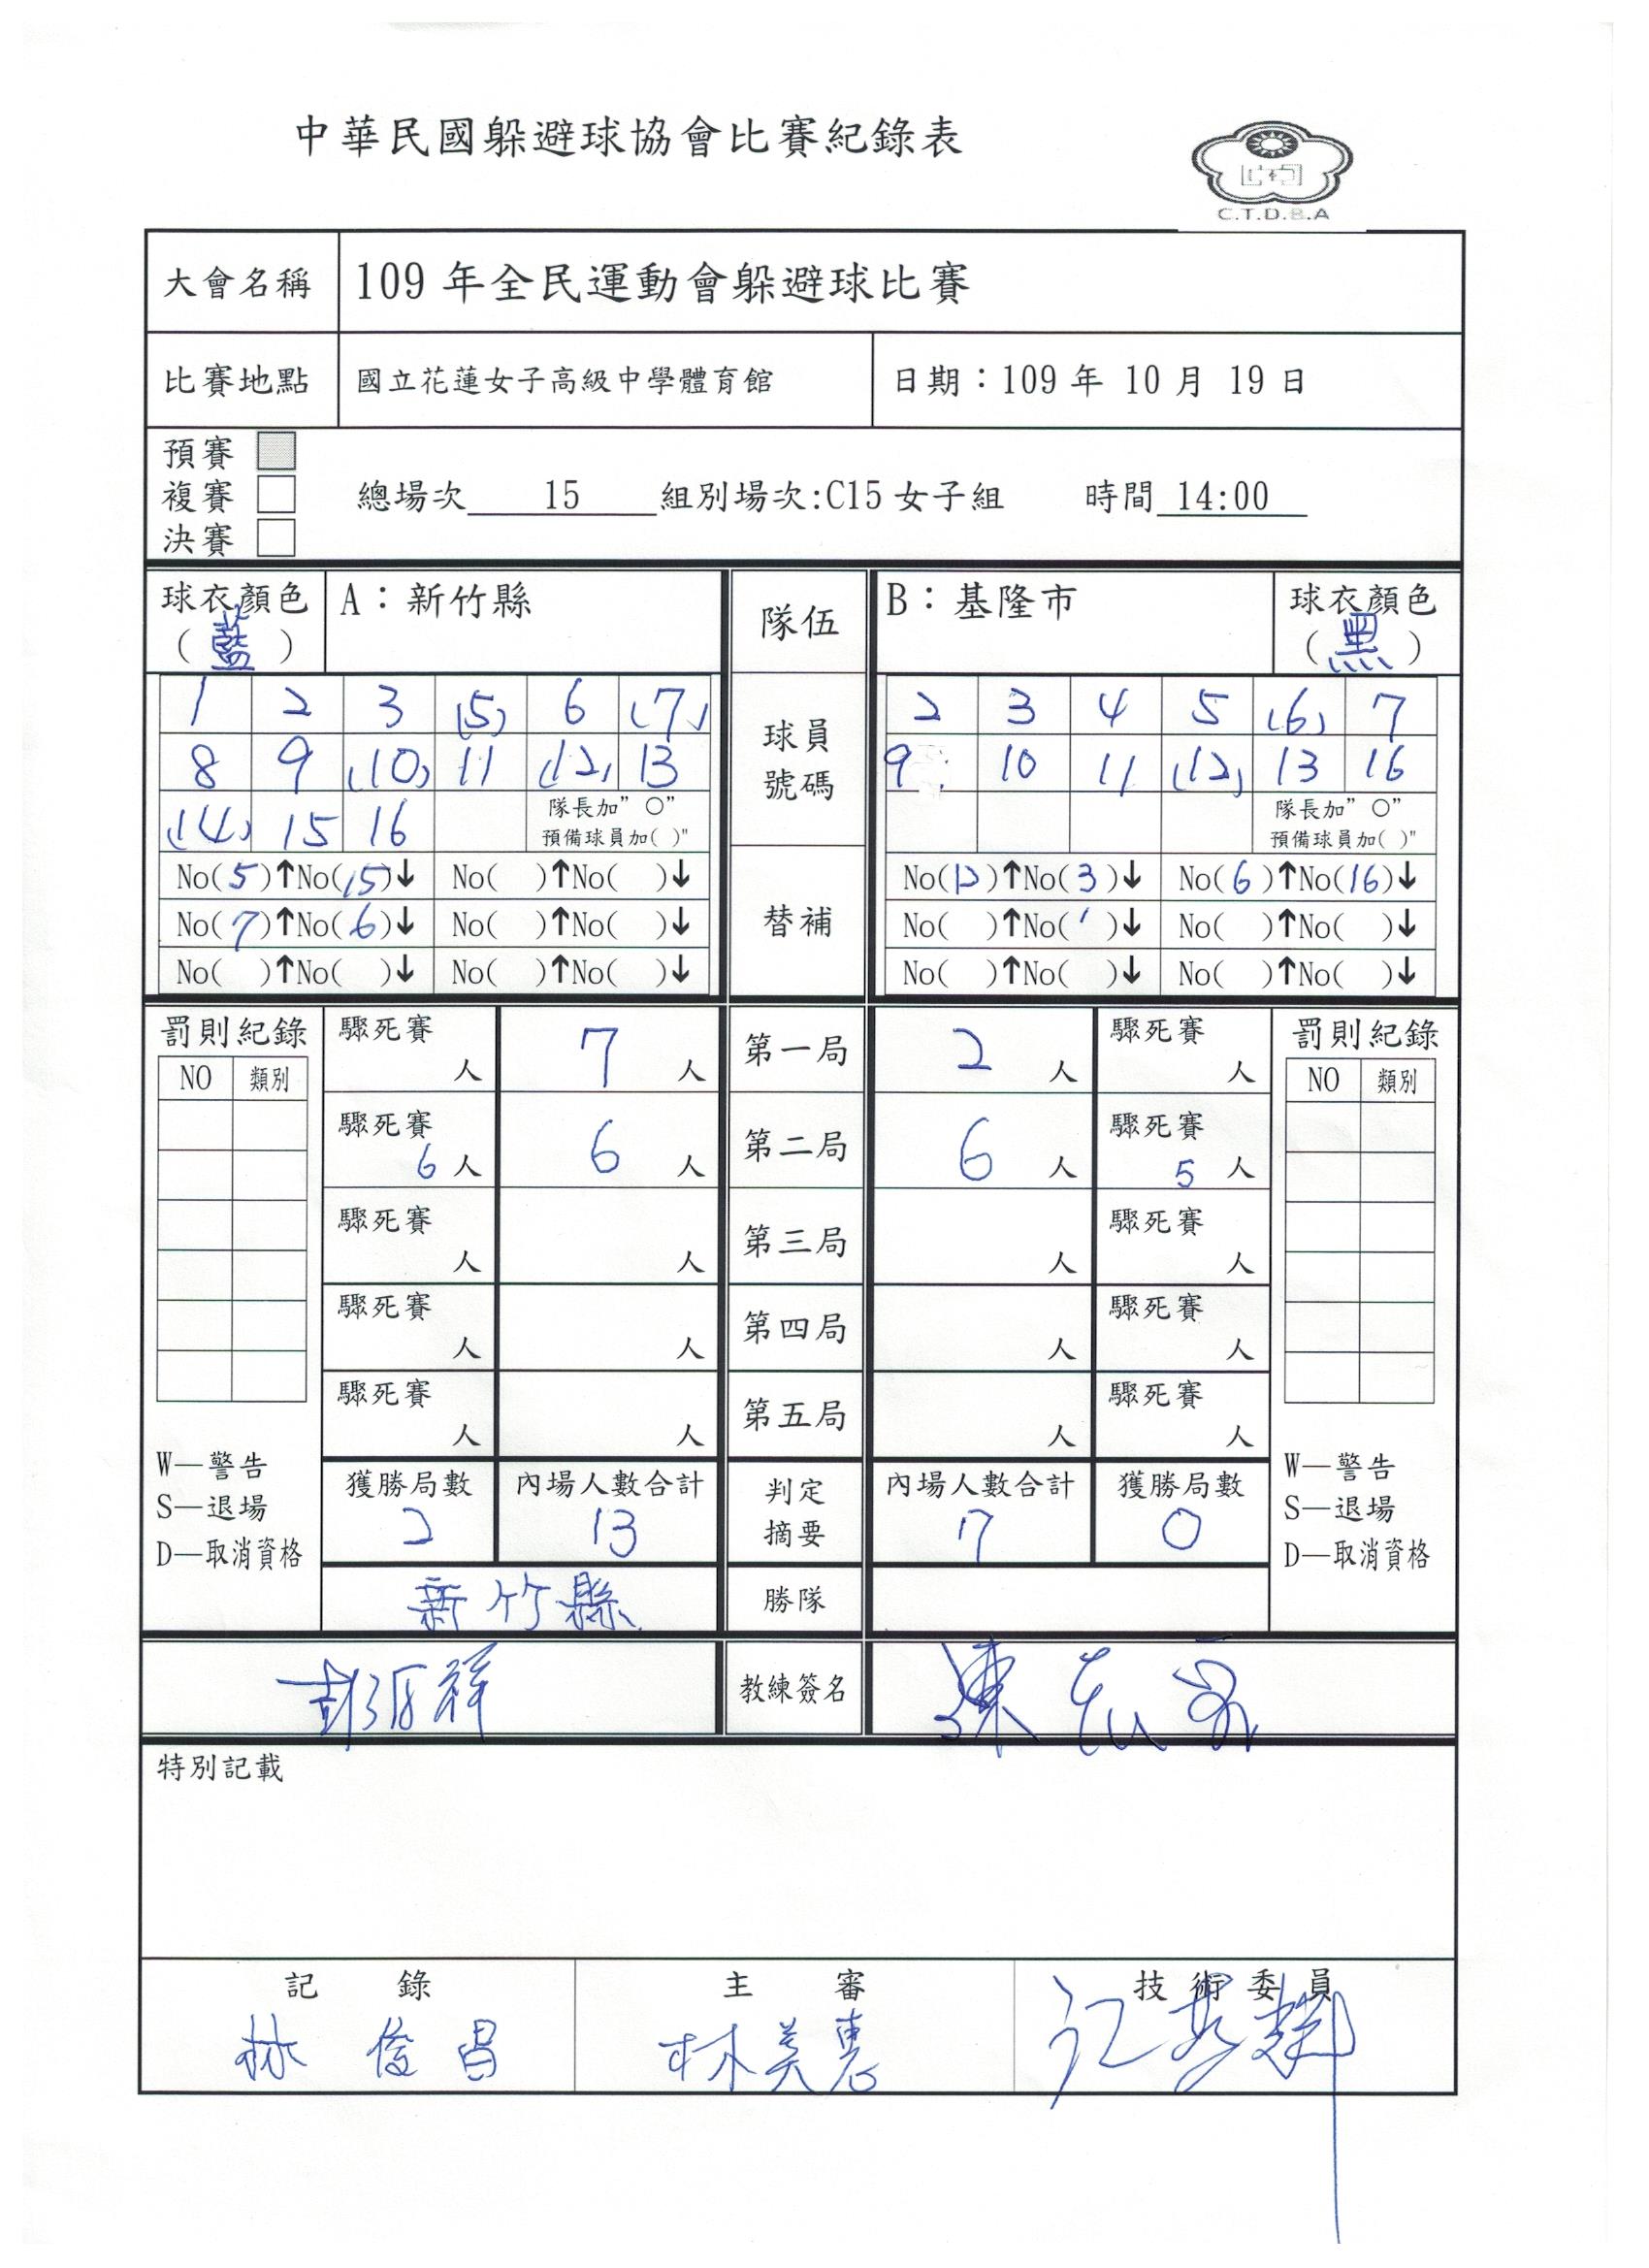 中華民國躲避球協會比賽紀錄表
C.T.D.B.A
大會名稱 109 年全民運動會躲避球比賽
比賽地點 國立花蓮女子高級中學體育館 日期：109 年 10 月 19 日
預賽
複賽 總場次 15 組別場次:C15 女子組 時間 14:00
決賽
球衣顏色 A：新竹縣 隊伍 B：基隆市 球衣顏色
（藍） （黑）
1 2 3 (5) 6 (7) 球員 2 3 4 5 (6) 7
8 9 (10) 11 (12) 13 號碼 9 10 11 (12) 13 16
(14) 15 16 隊長加"○" 隊長加"○"
預備球員加( )" 預備球員加( )"
No(5)↑No(15)↓ No( )↑No( )↓ 替補 No(12)↑No(3)↓ No(6)↑No(16)↓
No(7)↑No(6)↓ No( )↑No( )↓ No( )↑No( )↓ No( )↑No( )↓
No( )↑No( )↓ No( )↑No( )↓ No( )↑No( )↓ No( )↑No( )↓
罰則紀錄 驟死賽 人 7 人 第一局 2 人 驟死賽 人 罰則紀錄
NO 類別 NO 類別
驟死賽 6 人 6 人 第二局 6 人 驟死賽 5 人
驟死賽 人 人 第三局 人 驟死賽 人
驟死賽 人 人 第四局 人 驟死賽 人
驟死賽 人 人 第五局 人 驟死賽 人
W—警告 W—警告
S—退場 S—退場
D—取消資格 D—取消資格
獲勝局數 內場人數合計 判定摘要 內場人數合計 獲勝局數
2 13 7 0
新竹縣 勝隊
教練簽名
特別記載
記 錄 主 審 技 術 委 員
林俊昌 林美惠